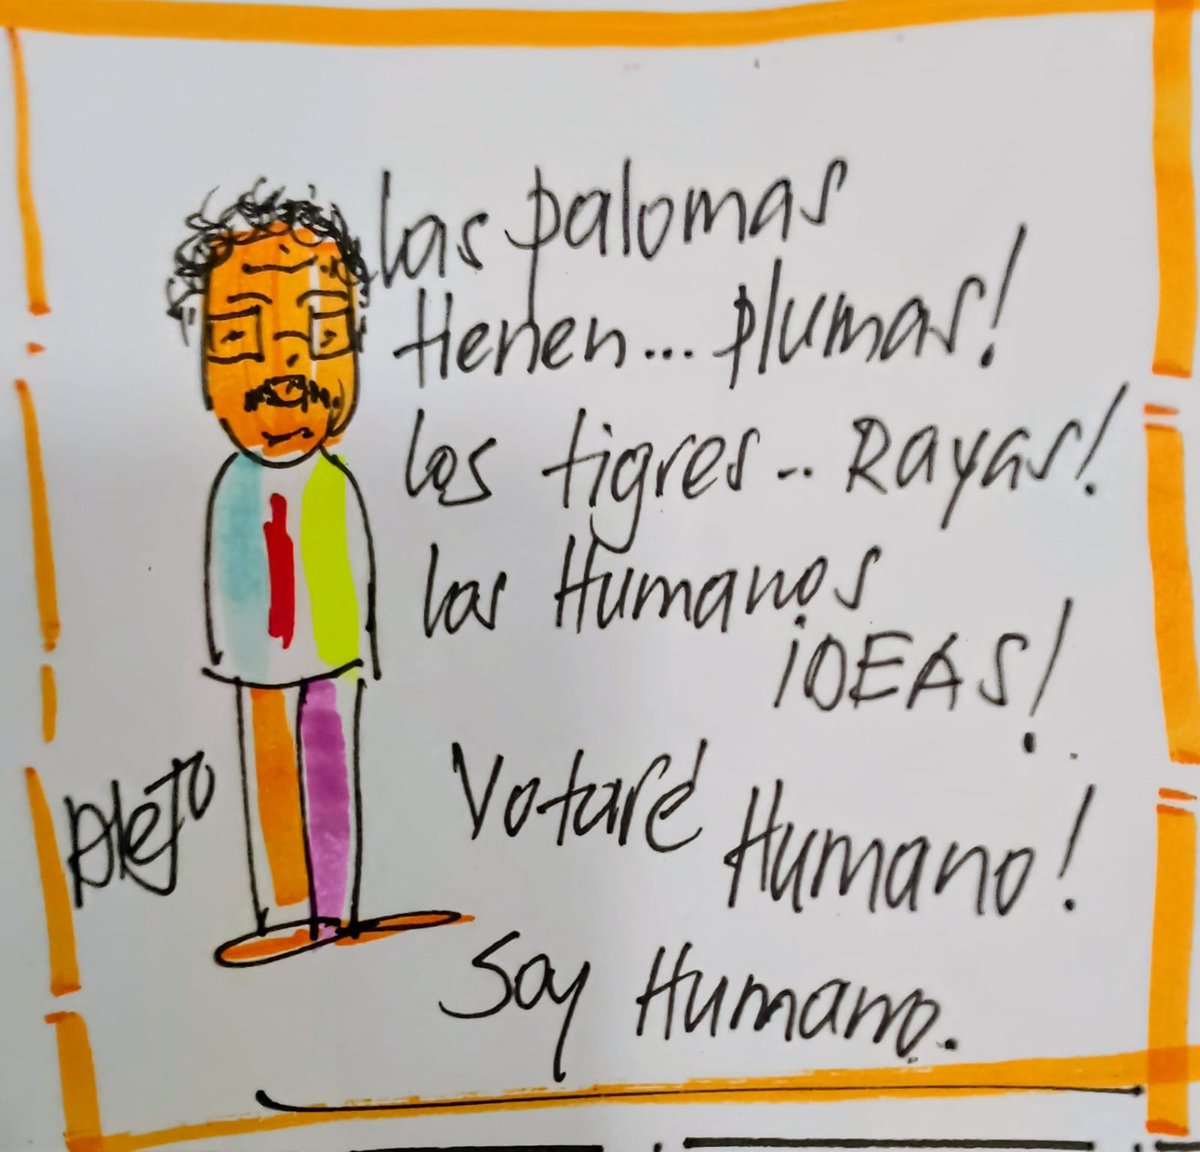 las palomas
tienen... plumas!
los tigres... RAYAS!
los Humanos
iDEAS!
Votaré
Humano!
Soy Humano.
Alejo